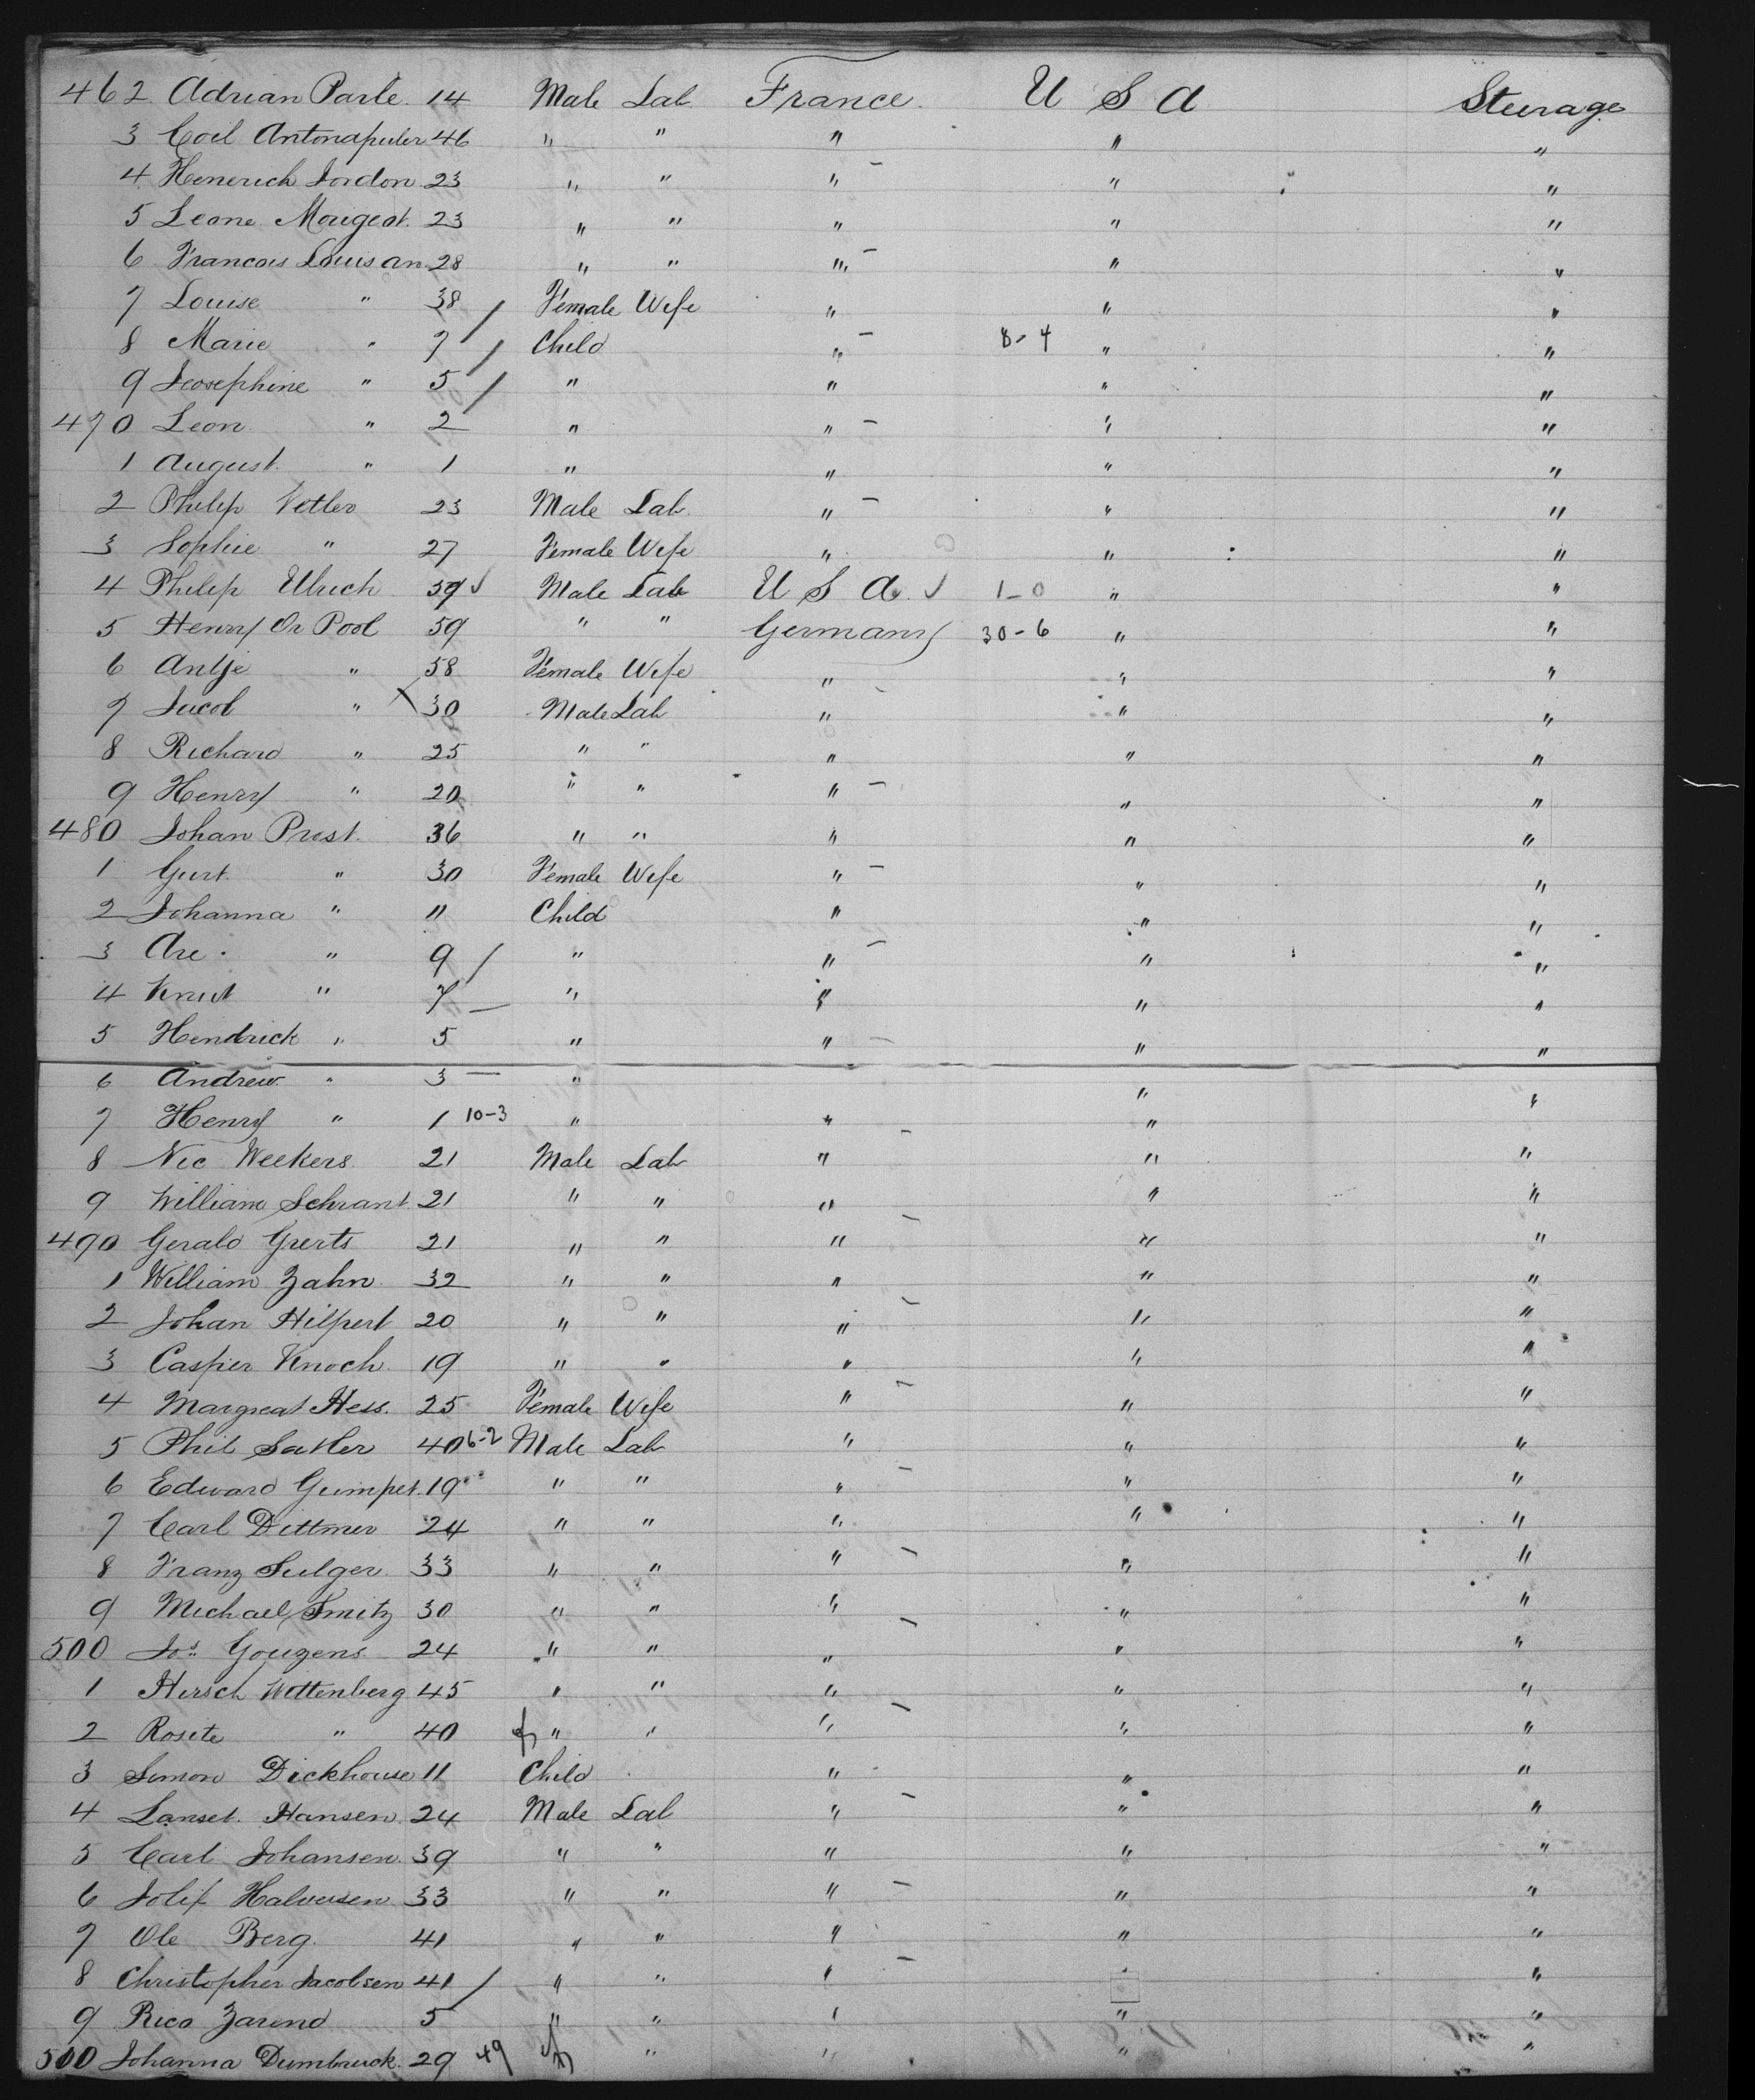 462 Adrian Parle 14 Male Lab France U S A Steerage
3 Coil Antonapuler 46 " " " " "
4 Henerich Jordon 23 " " " " "
5 Leone Mougeot 23 " " " " "
6 Francois Louis an 28 " " " " "
7 Louise " 38 / Female Wife " " "
8 Marie " 7 / Child " 8-4 " "
9 Jeosephine " 5 / " " " "
470 Leon " 2 " " " "
1 August " 1 " " " "
2 Philip Vetler 23 Male Lab " " "
3 Sophie " 27 Female Wife " " "
4 Philip Ulrich 59 Male Lab U S A 1-0 " "
5 Henry Or Pool 59 " " Germany 30-6 " "
6 Antje " 58 Female Wife " " "
7 Jacob " 30 Male Lab " " "
8 Richard " 25 " " " " "
9 Henry " 20 " " " " "
480 Johan Prost 36 " " " " "
1 Gurt " 30 Female Wife " " "
2 Johanna " 11 Child " " "
3 Are " 9 / " " " "
4 Knut " 7 " " " "
5 Hendrick " 5 " " " "
6 Andrew " 3 " " "
7 Henry " 1 10-3 " " " "
8 Nic Weekers 21 Male Lab " " "
9 William Schrant 21 " " " " "
490 Gerald Greets 21 " " " " "
1 William Zahn 32 " " " " "
2 Johan Hilpert 20 " " " " "
3 Casper Knoch 19 " " " " "
4 Margreat Hess 25 Female Wife " " "
5 Phil Satler 40 6-2 Male Lab " " "
6 Edward Gumpet 19 " " " " "
7 Carl Dittmer 24 " " " " "
8 Franz Sulger 33 " " " " "
9 Michael Smitz 30 " " " " "
500 Jos Gouzens 24 " " " " "
1 Hersch Wittenberg 45 " " " " "
2 Rosite " 40 f " " " " "
3 Simon Dickhouse 11 Child " " "
4 Lanset Hansen 24 Male Lab " " "
5 Carl Johansen 39 " " " " "
6 Jolif Halversen 33 " " " " "
7 Ole Berg 41 " " " " "
8 Christopher Jacobsen 41 / " " " " "
9 Rica Zarend 5 " " " " "
500 Johanna Dumbruck 29 49 f " " " "